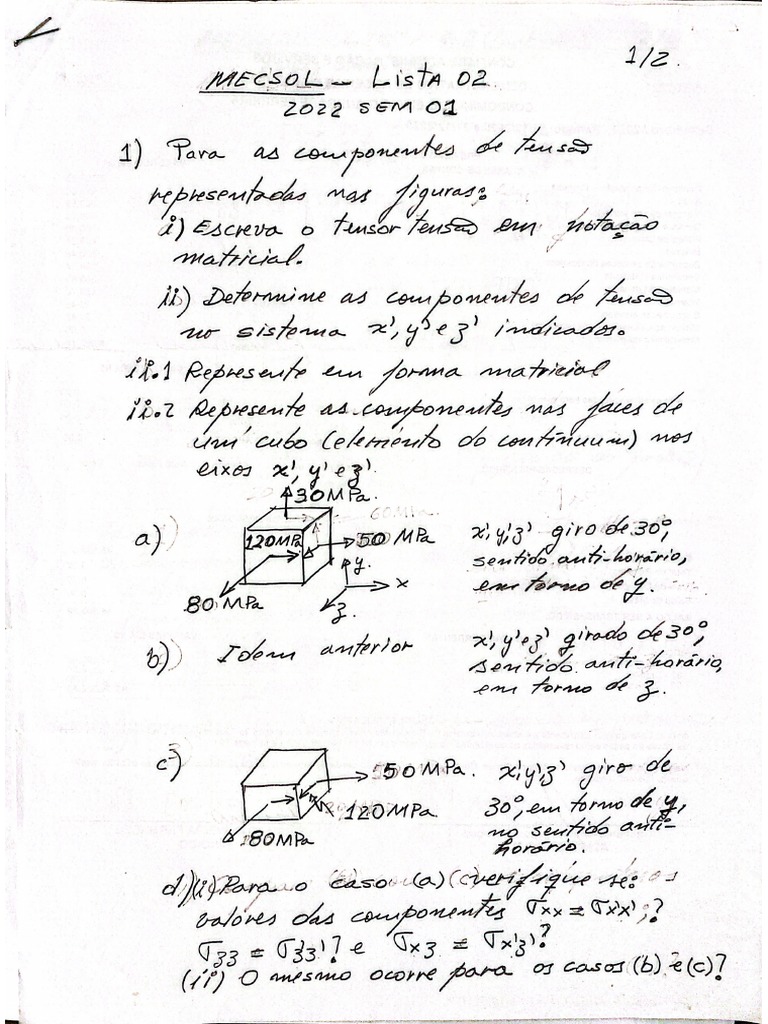 1/2.
MECSOL - LISTA 02
2022 SEM 01
1) Para as componentes de tensão
representadas nas figuras:
i) Escreva o tensor tensão em notação
matricial.
ii) Determine as componentes de tensão
no sistema x', y' e z' indicados.
ii.1 Represente em forma matricial
ii.2 Represente as componentes nas faces de
um cubo (elemento do contínuum) nos
eixos x', y' e z'.
30 MPa.
a) 120MPa 50 MPa x', y', z' giro de 30°,
y. sentido anti-horário,
x em torno de y.
80 MPa z.
b) Idem anterior x', y' e z' girado de 30°,
sentido anti-horário,
em torno de z.
c) 50 MPa. x', y', z' giro de
120MPa 30°, em torno de y,
80MPa no sentido anti-
horário.
d) (i) Para o caso (a) verifique se:
valores das componentes σxx = σx'x';?
σzz = σz'z'? e σxz = σx'z'?
(ii) O mesmo ocorre para os casos (b) e (c)?